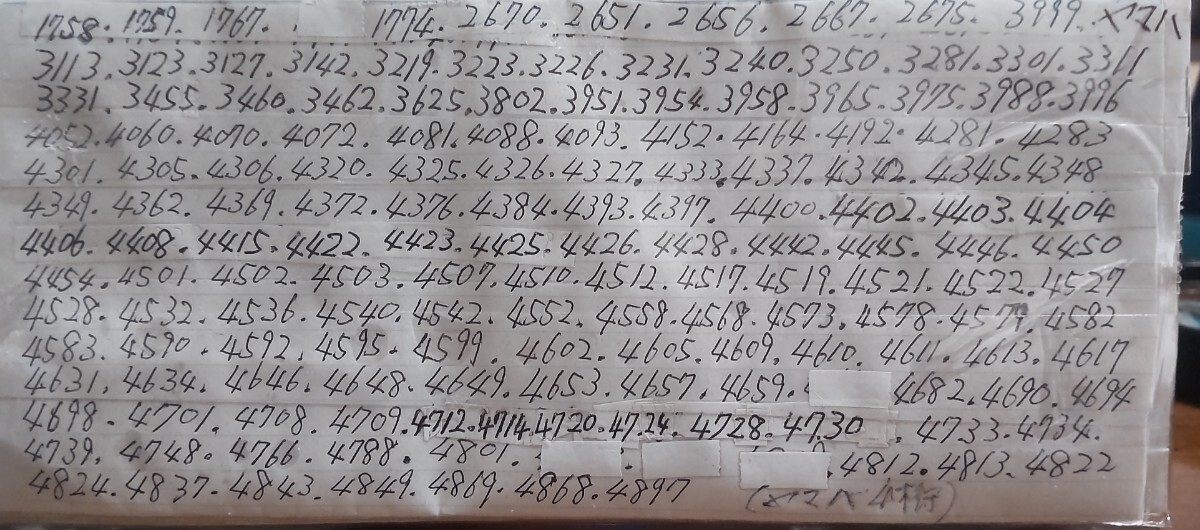 1758. 1759. 1767. 1774. 2670. 2651. 2656. 2667. 2675. 3999.
3113. 3123. 3127. 3142. 3219. 3223. 3226. 3231. 3240. 3250. 3281. 3301. 3311
3331. 3455. 3460. 3462. 3625. 3802. 3951. 3954. 3958. 3965. 3975. 3988. 3996
4052. 4060. 4070. 4072. 4081. 4088. 4093. 4152. 4164. 4192. 4281. 4283
4301. 4305. 4306. 4320. 4325. 4326. 4327. 4333. 4337. 4342. 4345. 4348
4349. 4362. 4369. 4372. 4376. 4384. 4393. 4397. 4400. 4402. 4403. 4404
4406. 4408. 4415. 4422. 4423. 4425. 4426. 4428. 4442. 4445. 4446. 4450
4454. 4501. 4502. 4503. 4507. 4510. 4512. 4517. 4519. 4521. 4522. 4527
4528. 4532. 4536. 4540. 4542. 4552. 4558. 4568. 4573. 4578. 4579. 4582
4583. 4590. 4592. 4595. 4599. 4602. 4605. 4609. 4610. 4611. 4613. 4617
4631. 4634. 4646. 4648. 4649. 4653. 4657. 4659. 4682. 4690. 4694
4698. 4701. 4708. 4709. 4712. 4714. 4720. 4724. 4728. 4730. 4733. 4734.
4739. 4748. 4766. 4788. 4801. . 4812. 4813. 4822
4824. 4837. 4843. 4849. 4869. 4868. 4897